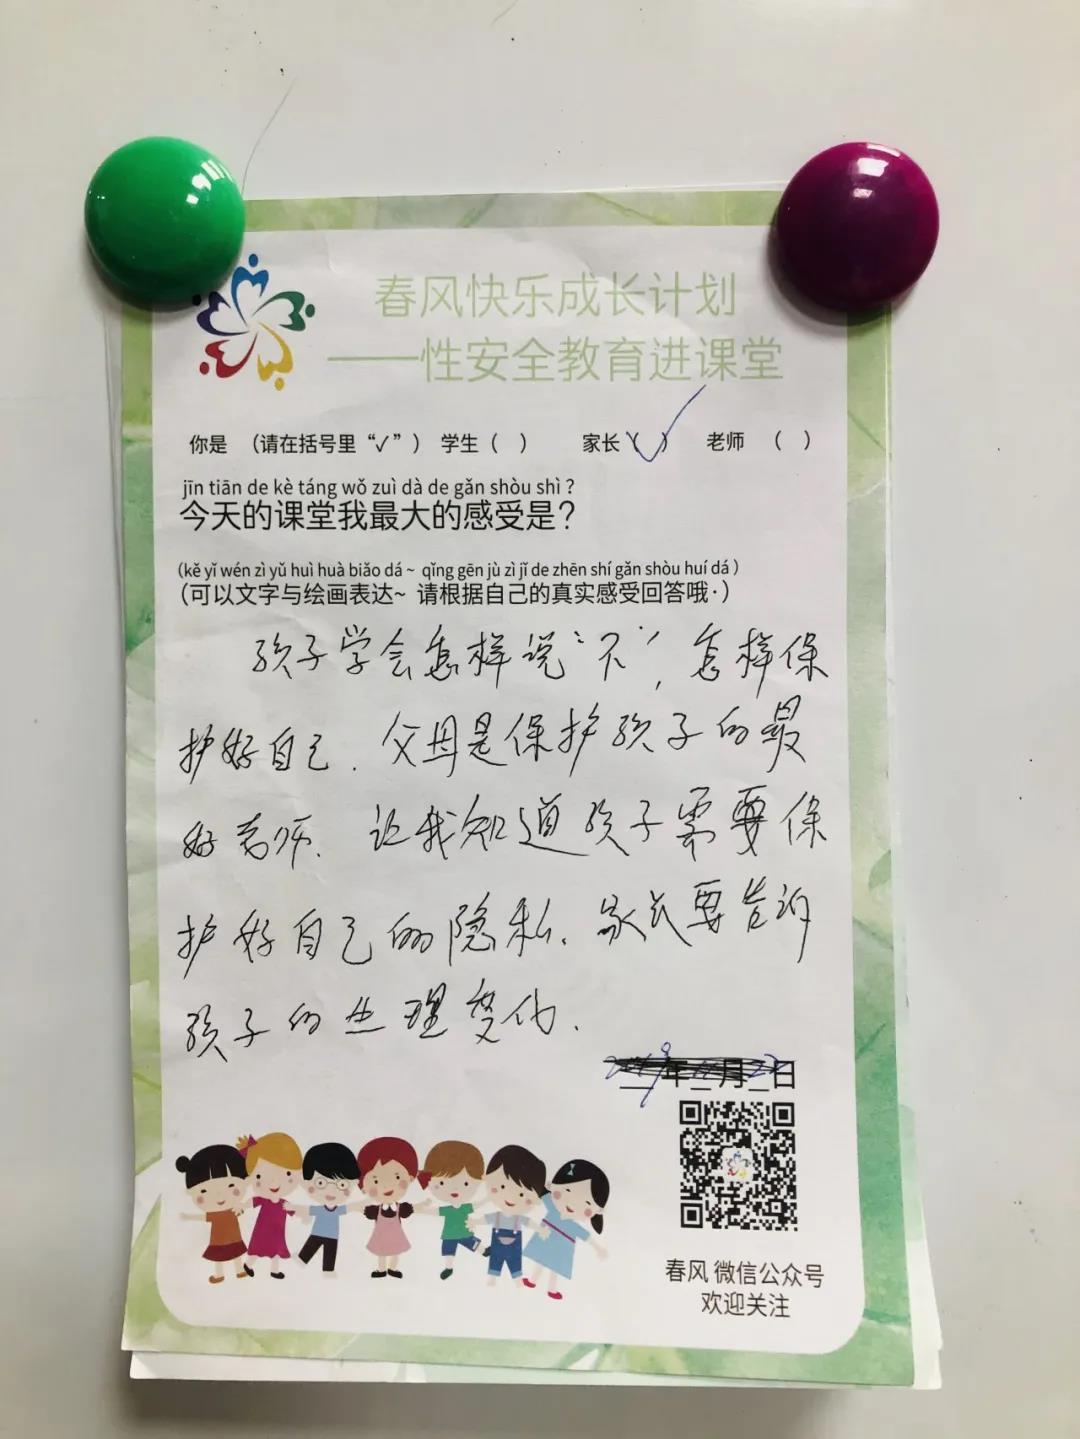 春风快乐成长计划
——性安全教育进课堂
你是 (请在括号里“✓”) 学生 ( ) 家长 (✓) 老师 ( )
jīn tiān de kè táng wǒ zuì dà de gǎn shòu shì ?
今天的课堂我最大的感受是?
(kě yǐ wén zì yǔ huì huà biǎo dá ~ qǐng gēn jù zì jǐ de zhēn shí gǎn shòu huí dá )
(可以文字与绘画表达~ 请根据自己的真实感受回答哦·)
孩子学会怎样说“不”,怎样保
护好自己.父母是保护孩子的最
好老师.让我知道孩子需要保
护好自己的隐私.家长要告诉
孩子的生理变化.
年 月 日
春风 微信公众号
欢迎关注